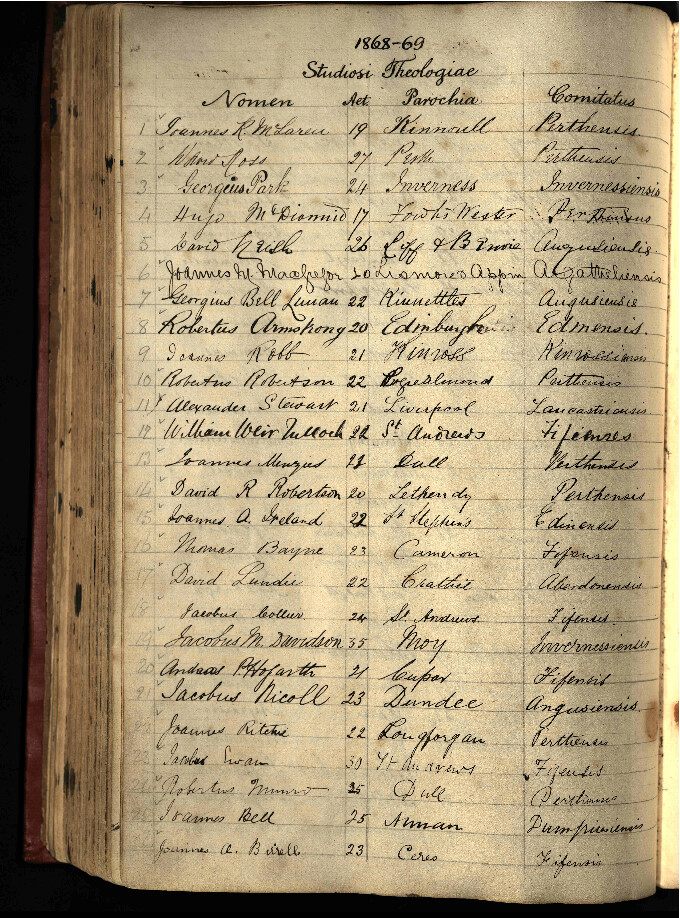 1868-69
Studiosi Theologiae
Nomen Aet. Parochia Comitatus
1 Joannes R. McLaren 19 Kinnoull Perthensis
2 David Ross 27 Perth Perthensis
3 Georgius Park 24 Inverness Invernessiensis
4 Hugo McDiarmid 17 Fowlis Wester
5 David Keith 26 Liff & Benvie Angusiensis
6 Joannes M. Macgregor Lismore & Appin Argatheliensis
7 Georgius Bell Lunan 22 Kinnettles Angusiensis
8 Robertus Armstrong 20 Edinburgh Edinensis.
9 Joannes Robb 21 Kinross
10 Robertus Robertson 22 Logiealmond Perthensis
11 Alexander Stewart 21 Liverpool Lancastriensis
12 William Weir Tulloch 22 St Andrews
13 Joannes Menzies Dull Perthensis
14 David R Robertson 20 Lethendy Perthensis
15 Joannes A. Ireland 22 St Stephens Edinensis
16 Thomas Bayne 23 Cameron Fifensis
17 David Lundie 22 Crathie Aberdonensis
18 Jacobus Collier 24 St. Andrews Fifensis.
19 Jacobus M. Davidson 35 Moy Invernessiensis
20 Andreas P. Hogarth 21 Cupar Fifensis
21 Jacobus Nicoll 23 Dundee Angusiensis
22 Joannes Ritchie 22 Longforgan Perthensis
23 Jacobus Ewan 30 St Andrews Fifensis
24 Robertus Munro 25 Dull Perthensis
25 Joannes Bell 25 Annan
Joannes A. Birrell 23 Ceres Fifensis